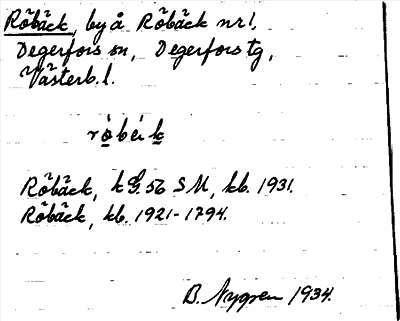 Röbäck, by å Röbäck nr 1,
Degerfors sn, Degerfors tg,
Västerb. l.
Röbäck, k G. 56 SM, kb. 1931.
Röbäck, kb. 1921-1794.
B. Nygren 1934.